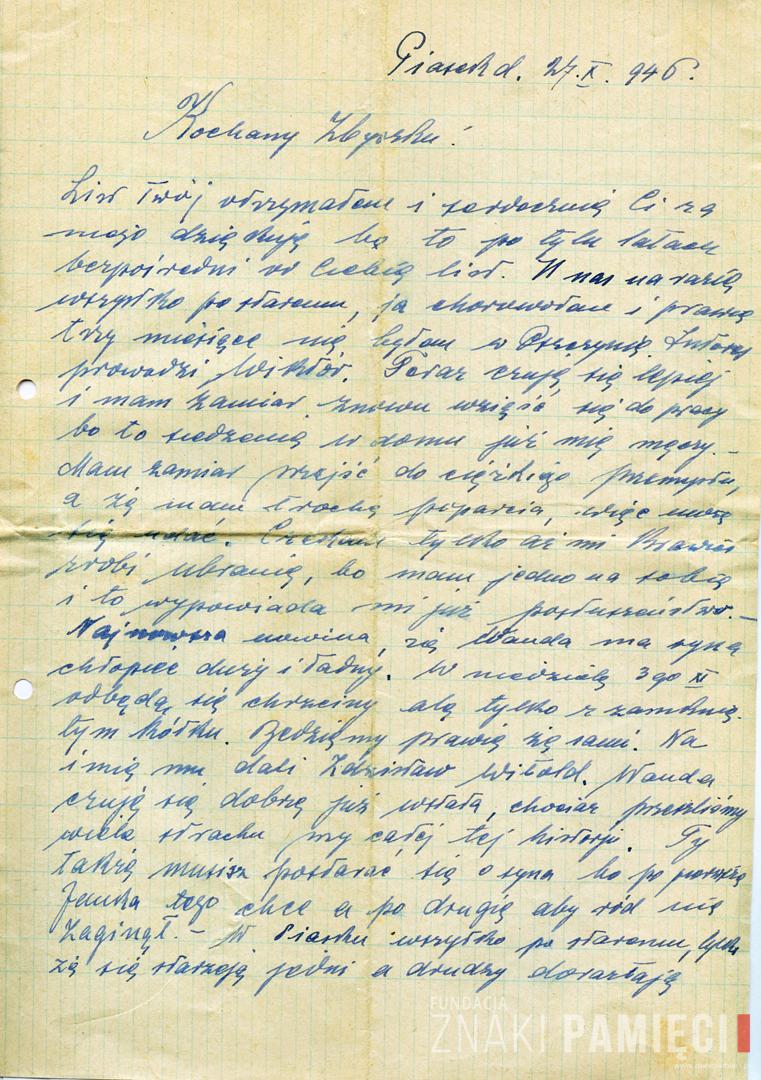 Piasek d. 27.X. 946 r.
Kochany Zbyszku!
List Twój otrzymałem i serdecznie Ci za
niego dziękuję bo to po tylu latach
bezpośredni od Ciebie list. U nas na razie
wszystko po staremu, ja chorowałem i prawie
trzy miesiące nie byłem w Pszczynie. Interes
prowadzi Wiktor. Teraz czuję się lepiej
i mam zamiar znowu wziąść się do pracy
bo to siedzenie w domu już mię męczy. –
Mam zamiar przejść do ciężkiego przemysłu,
a że mam trochę poparcia, więc może
się udać. Czekam tylko aż mi Krawiec
zrobi ubranie, bo mam jedno na sobie
i to wypowiada mi już posłuszeństwo. –
Najnowsza nowina, że Wanda ma syna
chłopieć duży i ładny. W niedzielę 3go XI
odbędą się chrzciny ale tylko w zamknię-
tym kółku. Będziemy prawie że sami. Na
imię mu dali Zdzisław Witold. Wanda
czuje się dobrze już wstała, chociaż przeszliśmy
wiele strachu przy całej tej historji. Ty
także musisz postarać się o syna bo po pierwsze
Jemka tego chce a po drugie aby ród nie
zaginął. – W Piasku wszystko po staremu, tylko
że się starzeją jedni a drudzy dorastają
FUNDACJA
ZNAKI PAMIĘCI